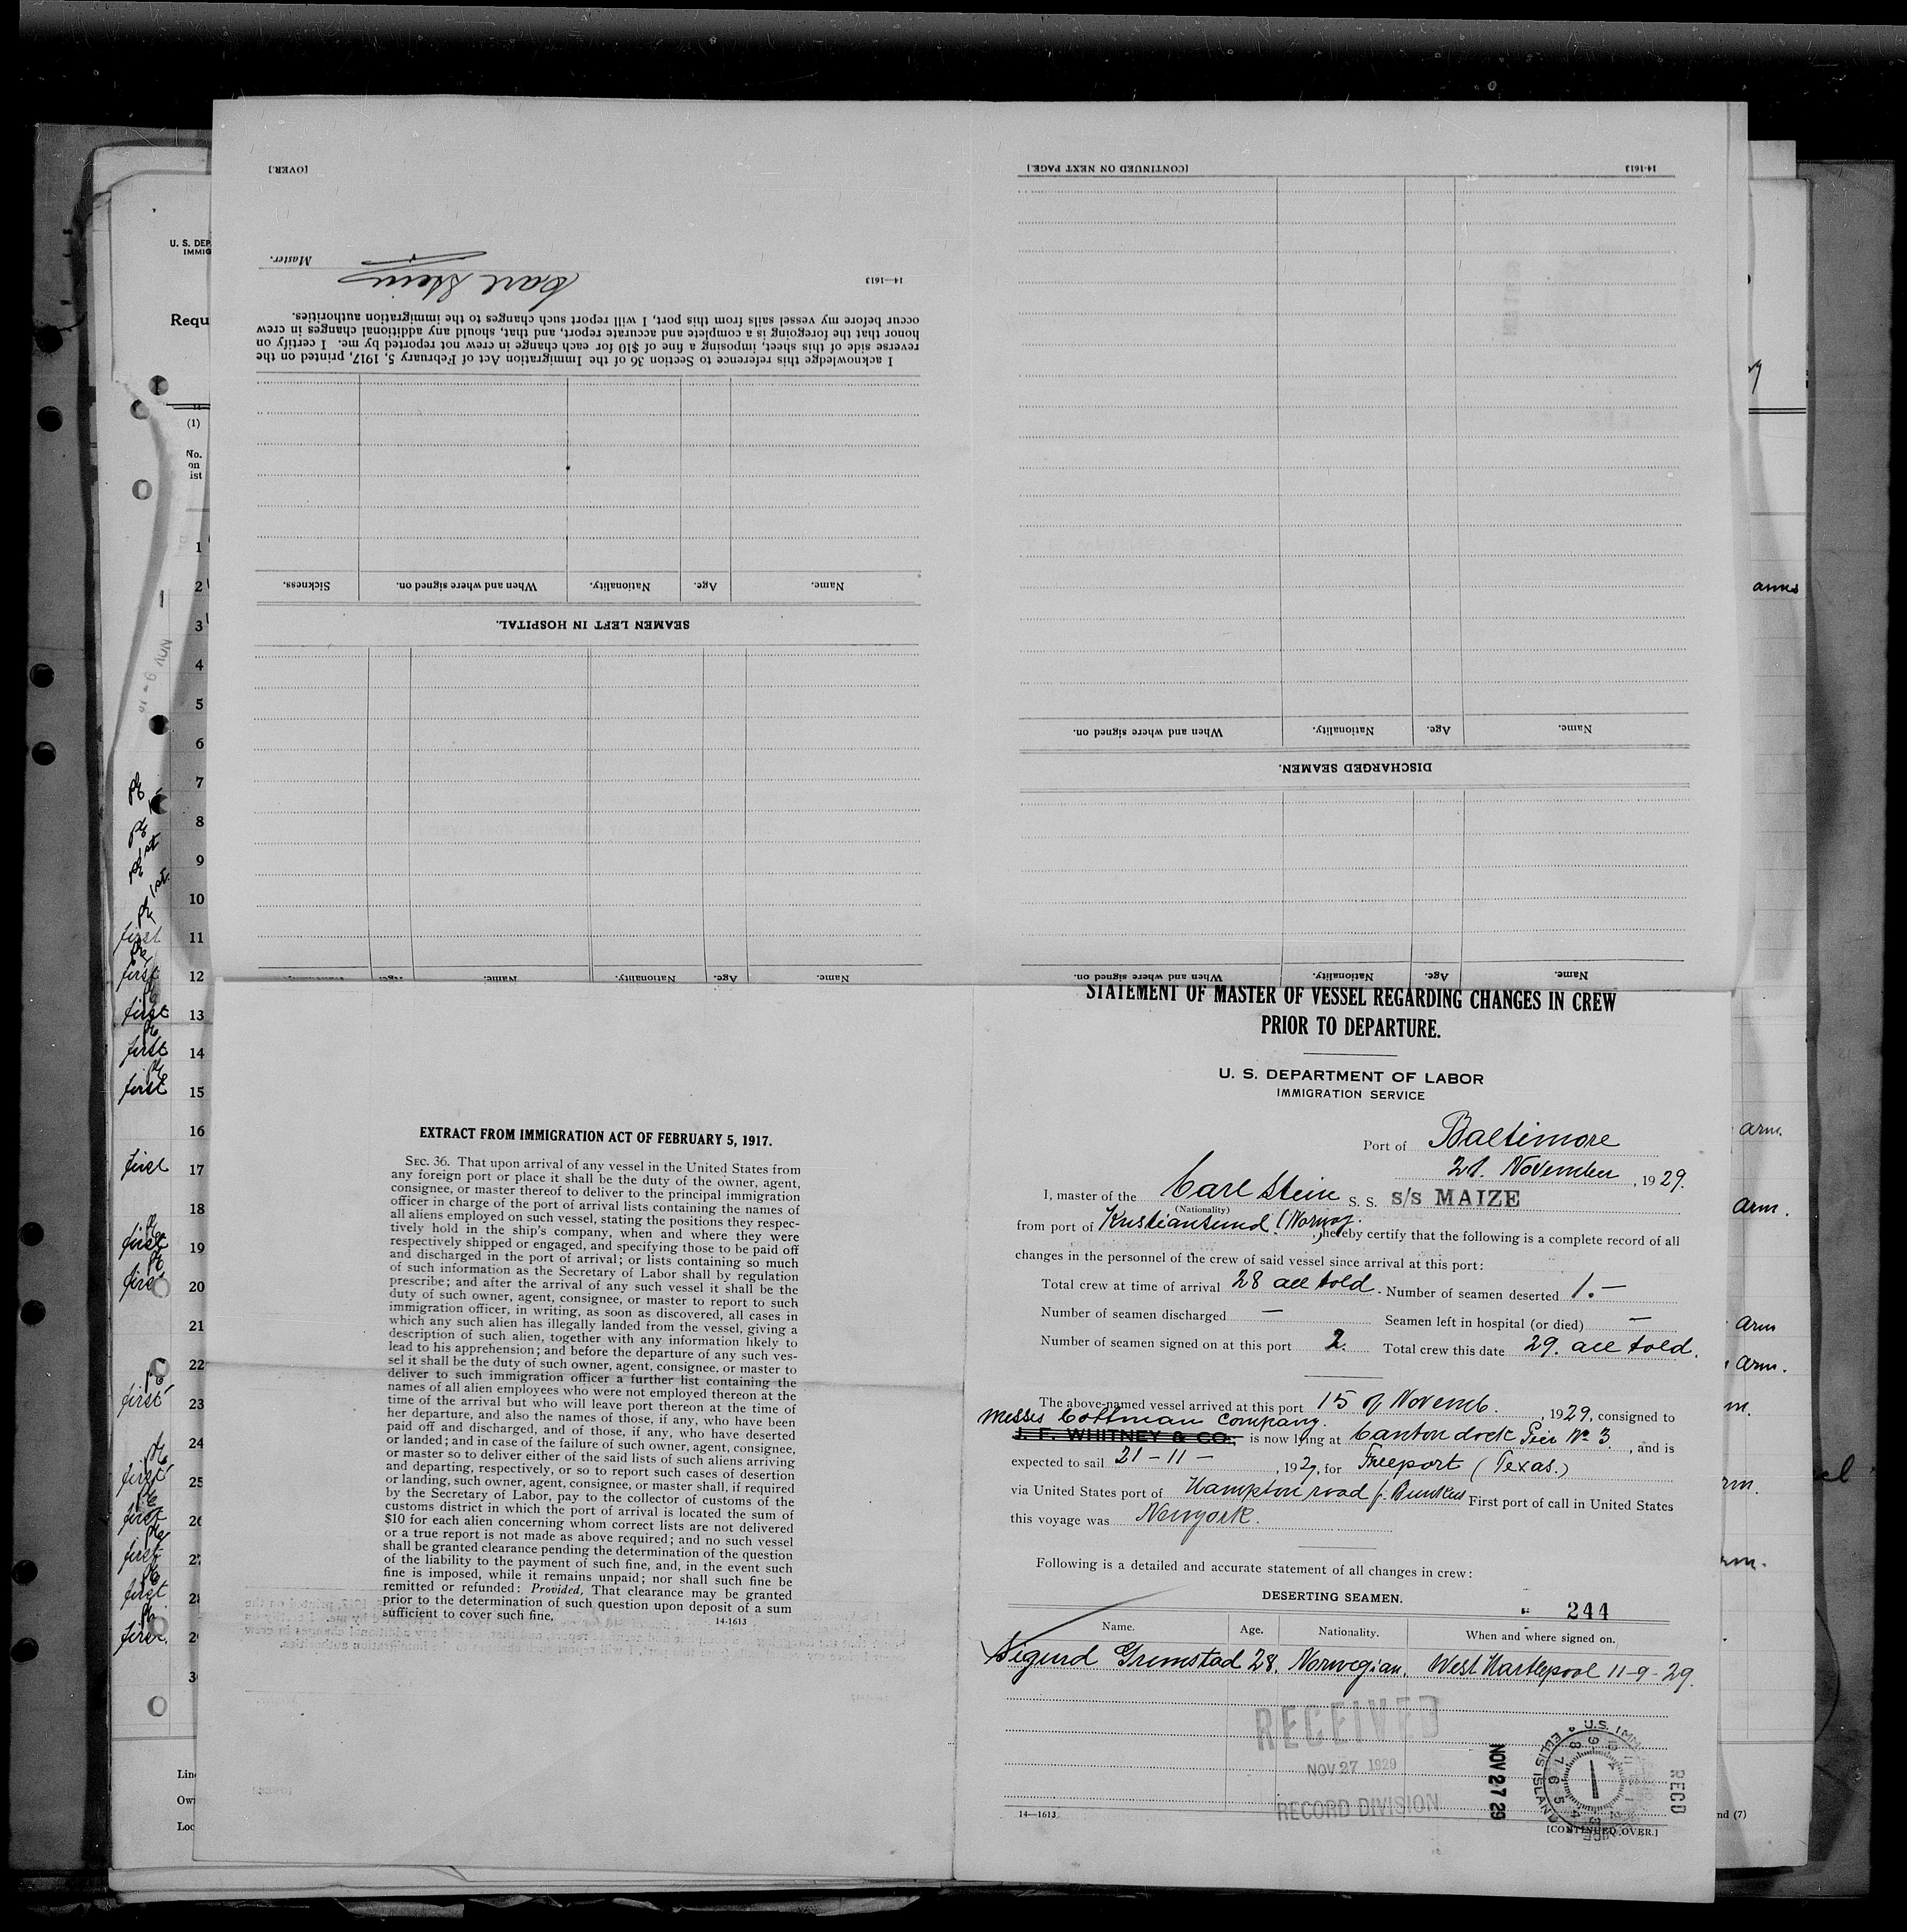 [OVER.]
Master.
Carl Stein
14—1613
I acknowledge this reference to Section 36 of the Immigration Act of February 5, 1917, printed on the
reverse side of this sheet, imposing a fine of $10 for each change in crew not reported by me. I certify on
honor that the foregoing is a complete and accurate report, and that, should any additional changes in crew
occur before my vessel sails from this port, I will report such changes to the immigration authorities.
Name. Age. Nationality. When and where signed on. Sickness.
SEAMEN LEFT IN HOSPITAL.
Name. Age. Nationality. Name.
[CONTINUED ON NEXT PAGE.]
14-1613
Name. Age. Nationality. When and where signed on.
DISCHARGED SEAMEN.
Name. Age. Nationality. When and where signed on.
U. S. DEP
IMMIG
Requ
(1)
No.
on
ist
1
2
3
4
5
6
7
8
9
10
first 11
first 12
first 13
first 14
first 15
16
first 17
18
first 19
first 20
21
22
first 23
24
first 25
first 26
first 27
first 28
first 29
30
Lin
Ow
Loc
arms
arm.
arm.
arm
arm.
rm.
rm.
nd (7)
EXTRACT FROM IMMIGRATION ACT OF FEBRUARY 5, 1917.
SEC. 36. That upon arrival of any vessel in the United States from
any foreign port or place it shall be the duty of the owner, agent,
consignee, or master thereof to deliver to the principal immigration
officer in charge of the port of arrival lists containing the names of
all aliens employed on such vessel, stating the positions they respec-
tively hold in the ship's company, when and where they were
respectively shipped or engaged, and specifying those to be paid off
and discharged in the port of arrival; or lists containing so much
of such information as the Secretary of Labor shall by regulation
prescribe; and after the arrival of any such vessel it shall be the
duty of such owner, agent, consignee, or master to report to such
immigration officer, in writing, as soon as discovered, all cases in
which any such alien has illegally landed from the vessel, giving a
description of such alien, together with any information likely to
lead to his apprehension; and before the departure of any such ves-
sel it shall be the duty of such owner, agent, consignee, or master to
deliver to such immigration officer a further list containing the
names of all alien employees who were not employed thereon at the
time of the arrival but who will leave port thereon at the time of
her departure, and also the names of those, if any, who have been
paid off and discharged, and of those, if any, who have deserted
or landed; and in case of the failure of such owner, agent, consignee,
or master so to deliver either of the said lists of such aliens arriving
and departing, respectively, or so to report such cases of desertion
or landing, such owner, agent, consignee, or master shall, if required
by the Secretary of Labor, pay to the collector of customs of the
customs district in which the port of arrival is located the sum of
$10 for each alien concerning whom correct lists are not delivered
or a true report is not made as above required; and no such vessel
shall be granted clearance pending the determination of the question
of the liability to the payment of such fine, and, in the event such
fine is imposed, while it remains unpaid; nor shall such fine be
remitted or refunded: Provided, That clearance may be granted
prior to the determination of such question upon deposit of a sum
sufficient to cover such fine.
14-1613
STATEMENT OF MASTER OF VESSEL REGARDING CHANGES IN CREW
PRIOR TO DEPARTURE.
U. S. DEPARTMENT OF LABOR
IMMIGRATION SERVICE
Port of Baltimore
21. November, 1929.
I, master of the Carl Stein S. S. S/S MAIZE
(Nationality)
from port of Kristiansund (Norway. , hereby certify that the following is a complete record of all
changes in the personnel of the crew of said vessel since arrival at this port:
Total crew at time of arrival 28 all told. Number of seamen deserted 1.—
Number of seamen discharged — Seamen left in hospital (or died) —
Number of seamen signed on at this port 2. Total crew this date 29. all told.
The above-named vessel arrived at this port 15 of Novemb. , 1929, consigned to
Messes Cottman Company.
J. F. WHITNEY & CO., is now lying at Canton dock Pier No 3, and is
expected to sail 21-11- , 1929, for Freeport (Texas.)
via United States port of Hampton road f. Bunkers First port of call in United States
this voyage was Newyork.
Following is a detailed and accurate statement of all changes in crew:
DESERTING SEAMEN.
244
Name. Age. Nationality. When and where signed on.
Sigurd Grimstad 28. Norwegian. West Hartlepool 11-9-29.
RECEIVED
NOV 27 1929
RECORD DIVISION
NOV 27 29
ELLIS ISLAND
U.S. IMM
RECD
14—1613
[CONTINUED OVER.]